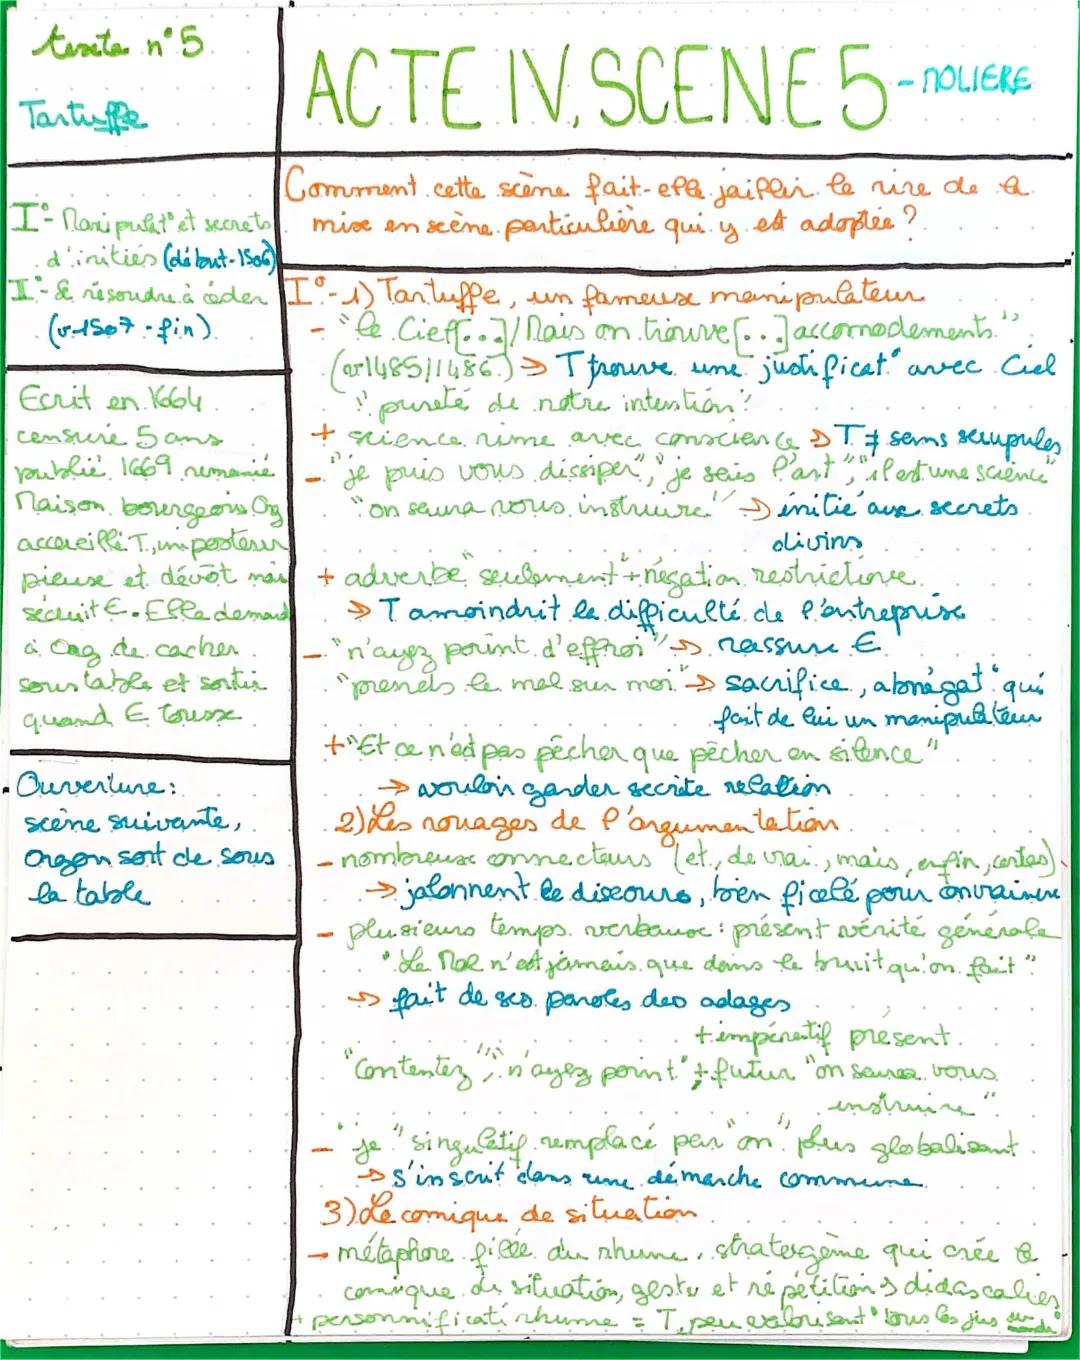 texte n°5
Tartuffe
ACTE IV, SCENE 5 - MOLIERE
Comment cette scène fait-elle jaillir le rire de la
mise en scène particulière qui y est adoptée ?
I°- Manipulat° et secrets
d'initiés (début-1506)
I°- & résoudre à céder
(v.1507-fin)
Ecrit en 1664
censuré 5 ans
publié 1669 remanié
Maison bourgeois Org
accueille T, imposteur
pieuse et dévôt mais
séduit E. Elle demand
à Org de cacher
sous table et sortir
quand E tousse
Ouverture :
scène suivante,
Orgon sort de sous
la table
I°-1) Tartuffe, un fameux manipulateur
- "le Ciel [...] / Mais on trouve [...] accomodements"
(v.1485/1486) → T trouve une justificat° avec Ciel
"pureté de notre intention"
+ science rime avec conscience → T ≠ sans scrupules
- "je puis vous dissiper", "je sais l'art", "il est une science"
"on saura vous instruire" → initié aux secrets
divins
+ adverbe "seulement" + négation restrictive
→ T amoindrit la difficulté de l'entreprise
- "n'ayez point d'effroi" → rassure E
"prends le mal sur moi" → sacrifice, abnégat° qui
fait de lui un manipulateur
+ "Et ce n'est pas pécher que pécher en silence"
→ vouloir garder secrète relation
2) Les rouages de l'argumentation
- nombreux connecteurs (et, de vrai, mais, enfin, certes)
→ jalonnent le discours, bien ficelé pour convaincre
- plusieurs temps verbaux : présent vérité générale
"Le Mal n'est jamais que dans le bruit qu'on fait"
→ fait de ses paroles des adages
+ impératif présent
"Contentez", "n'ayez point" + futur "on saura vous
instruire"
- "je" singulatif remplacé par "on" plus globalisant
→ s'inscrit dans une démarche commune
3) Le comique de situation
- métaphore filée du rhume, stratergème qui crée le
comique de situation, geste et répétitions didascalies
+ personnificati rhume = T, peu valorisant "tous les jus du monde"